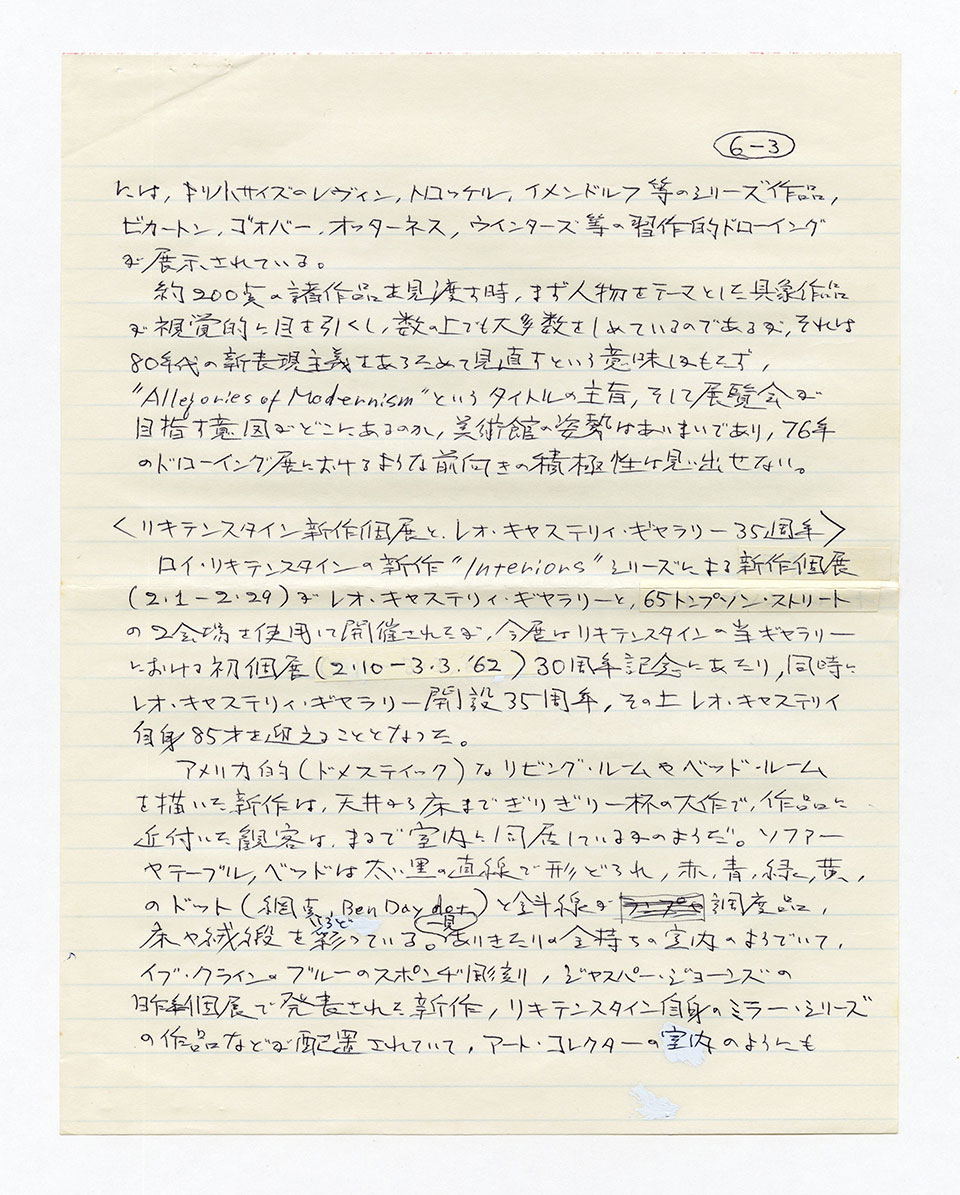 6-3
には、キリ小サイズのレヴィン、トロッケル、イメンドルフ等のシリーズ作品、
ビカートン、ゴオバー、オッターネス、ウインターズ等の習作的ドローイング
が展示されている。
約200点の諸作品を見渡す時、まず人物をテーマとした具象作品
が視覚的に目を引くし、数の上でも大多数をしめているのであるが、それは
80年代の新表現主義をあらためて見直すという意味しかもたず、
"Allegories of Modernism"というタイトルの主旨、そして展覧会が
目指す意図がどこにあるのか、美術館の姿勢はあいまいであり、76年
のドローイング展におけるような前向きの積極性は見い出せない。
〈リキテンスタイン新作個展と、レオ・キャステリィ・ギャラリー35周年〉
ロイ・リキテンスタインの新作"Interiors"シリーズによる新作個展
(2・1-2・29)がレオ・キャステリィ・ギャラリーと、65トンプソン・ストリート
の2会場を使用して開催されたが、今展はリキテンスタインの当ギャラリー
における初個展(2・10-3・3・'62)30周年記念にあたり、同時に
レオ・キャステリィ・ギャラリー開設35周年、その上レオ・キャステリィ
自身85才を迎えることとなった。
アメリカ的(ドメスティック)なリビング・ルームやベッド・ルーム
を描いた新作は、天井から床までぎりぎり一杯の大作で、作品に
近付いた観客は、まるで室内に同居しているかのようだ。ソファー
やテーブル、ベッドは太い黒の直線で形どられ、赤、青、緑、黄、
のドット(網点、Ben Day dot)と斜線が調度品、
床や絨緞を彩っている。一見ありきたりの金持ちの室内のようでいて、
いろど
イブ・クラインのブルーのスポンヂ彫刻、ジャスパー・ジョーンズの
昨年個展で発表された新作、リキテンスタイン自身のミラー・シリーズ
の作品などが配置されていて、アート・コレクターの室内のようにも